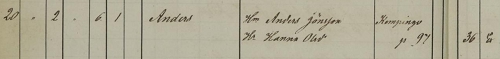 20 " 2 " 6 1 Anders Hm Anders Jönsson Kempinge
Hu Hanna Olsd. p 97 36 E